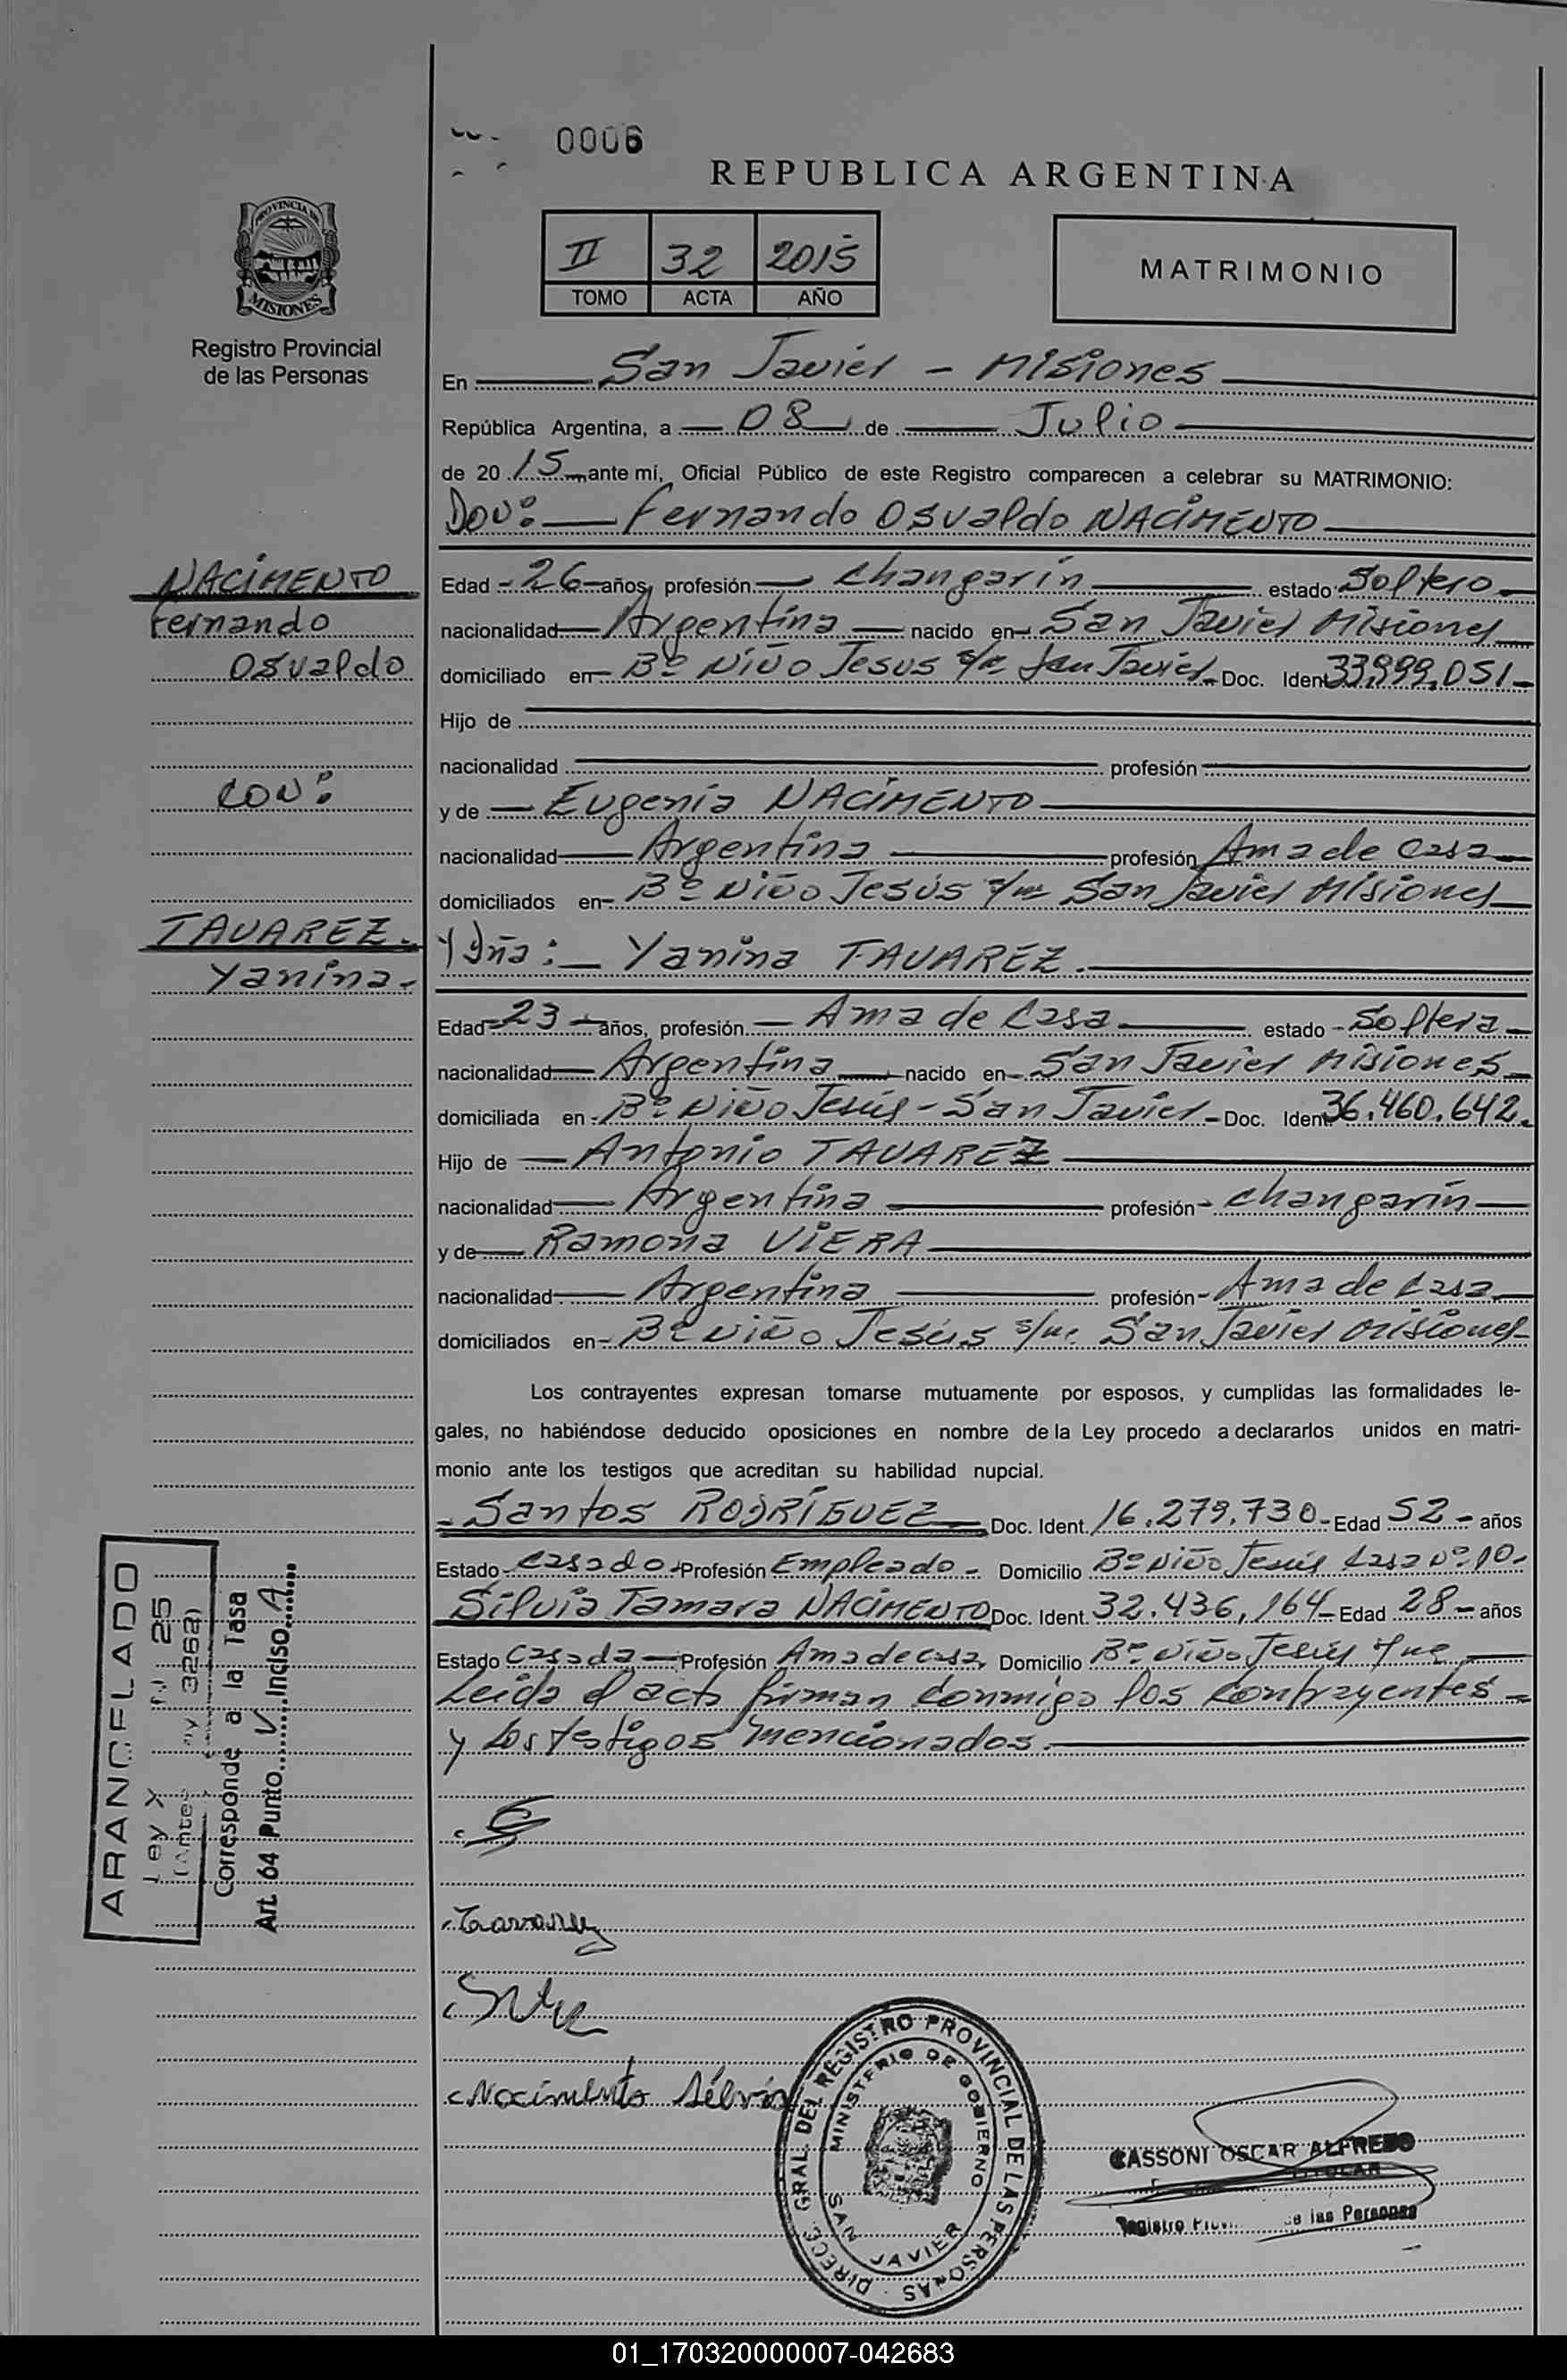 0006
REPUBLICA ARGENTINA
PROVINCIA DE
MISIONES
Registro Provincial
de las Personas
II 32 2015
TOMO ACTA AÑO
MATRIMONIO
En San Javier - Misiones
República Argentina, a 08 de Julio
de 20 15 ante mí, Oficial Público de este Registro comparecen a celebrar su MATRIMONIO:
Don: Fernando Osvaldo NACIMENTO
NACIMENTO
Fernando
Osvaldo
CON:
TAVAREZ.
Yanina.
Edad 26 años, profesión Changarín estado Soltero
nacionalidad Argentina nacido en San Javier Misiones
domiciliado en Bº Niño Jesus San Javier Doc. Ident 33.999.051
Hijo de
nacionalidad profesión
y de Eugenia NACIMENTO
nacionalidad Argentina profesión Ama de Casa
domiciliados en Bº Niño Jesús s/nº San Javier Misiones
Y Dña: Yanina TAVAREZ.
Edad 23 años, profesión Ama de Casa estado Soltera
nacionalidad Argentina nacido en San Javier Misiones
domiciliada en Bº Niño Jesús - San Javier Doc. Ident 36.460.642.
Hijo de Antonio TAVAREZ
nacionalidad Argentina profesión Changarín
y de Ramona VIERA
nacionalidad Argentina profesión Ama de Casa
domiciliados en Bº Niño Jesús s/nº San Javier Misiones
Los contrayentes expresan tomarse mutuamente por esposos, y cumplidas las formalidades le-
gales, no habiéndose deducido oposiciones en nombre de la Ley procedo a declararlos unidos en matri-
monio ante los testigos que acreditan su habilidad nupcial.
Santos RODRÍGUEZ Doc. Ident. 16.279.730 Edad 52 años
Estado Casado Profesión Empleado Domicilio Bº Niño Jesús Casa Nº 10
Silvia Tamara NACIMENTO Doc. Ident. 32.436.164 Edad 28 años
Estado Casada Profesión Ama de casa Domicilio Bº Niño Jesús s/nº
Leida el acta firman conmigo los contrayentes
y los testigos mencionados.
ARANCELADO
Ley X N 25
(Antes Ley 3262)
Corresponde a la Tasa
Art. 64 Punto V Inciso A
Tavarez
Nacimento Silvia
DIRECC. GRAL. DEL REGISTRO PROVINCIAL DE LAS PERSONAS
MINISTERIO DE GOBIERNO
SAN JAVIER
CASSONI OSCAR ALFREDO
TITULAR
Registro de las Personas
01_170320000007-042683